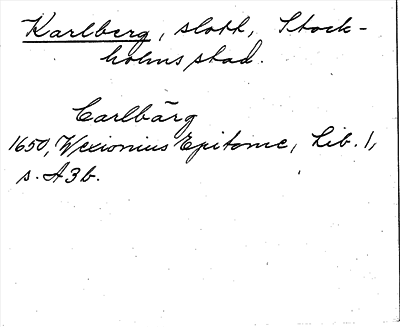 Karlberg, slott, Stock-
holms stad.
Carlbärg
1650, Wexionius Epitome, Lib. 1,
s. A3b.